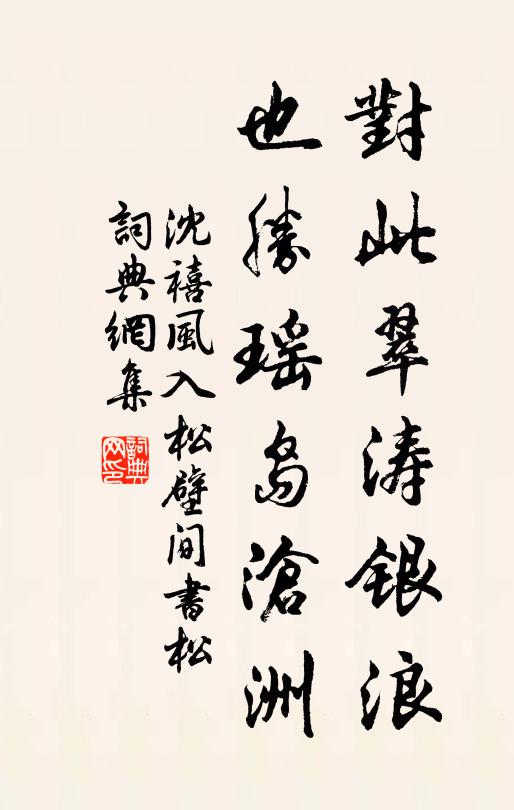 對此翠涛银浪
也勝瑶岛滄洲
沈禧風入松壁间書松
詞典網集
詞典网印